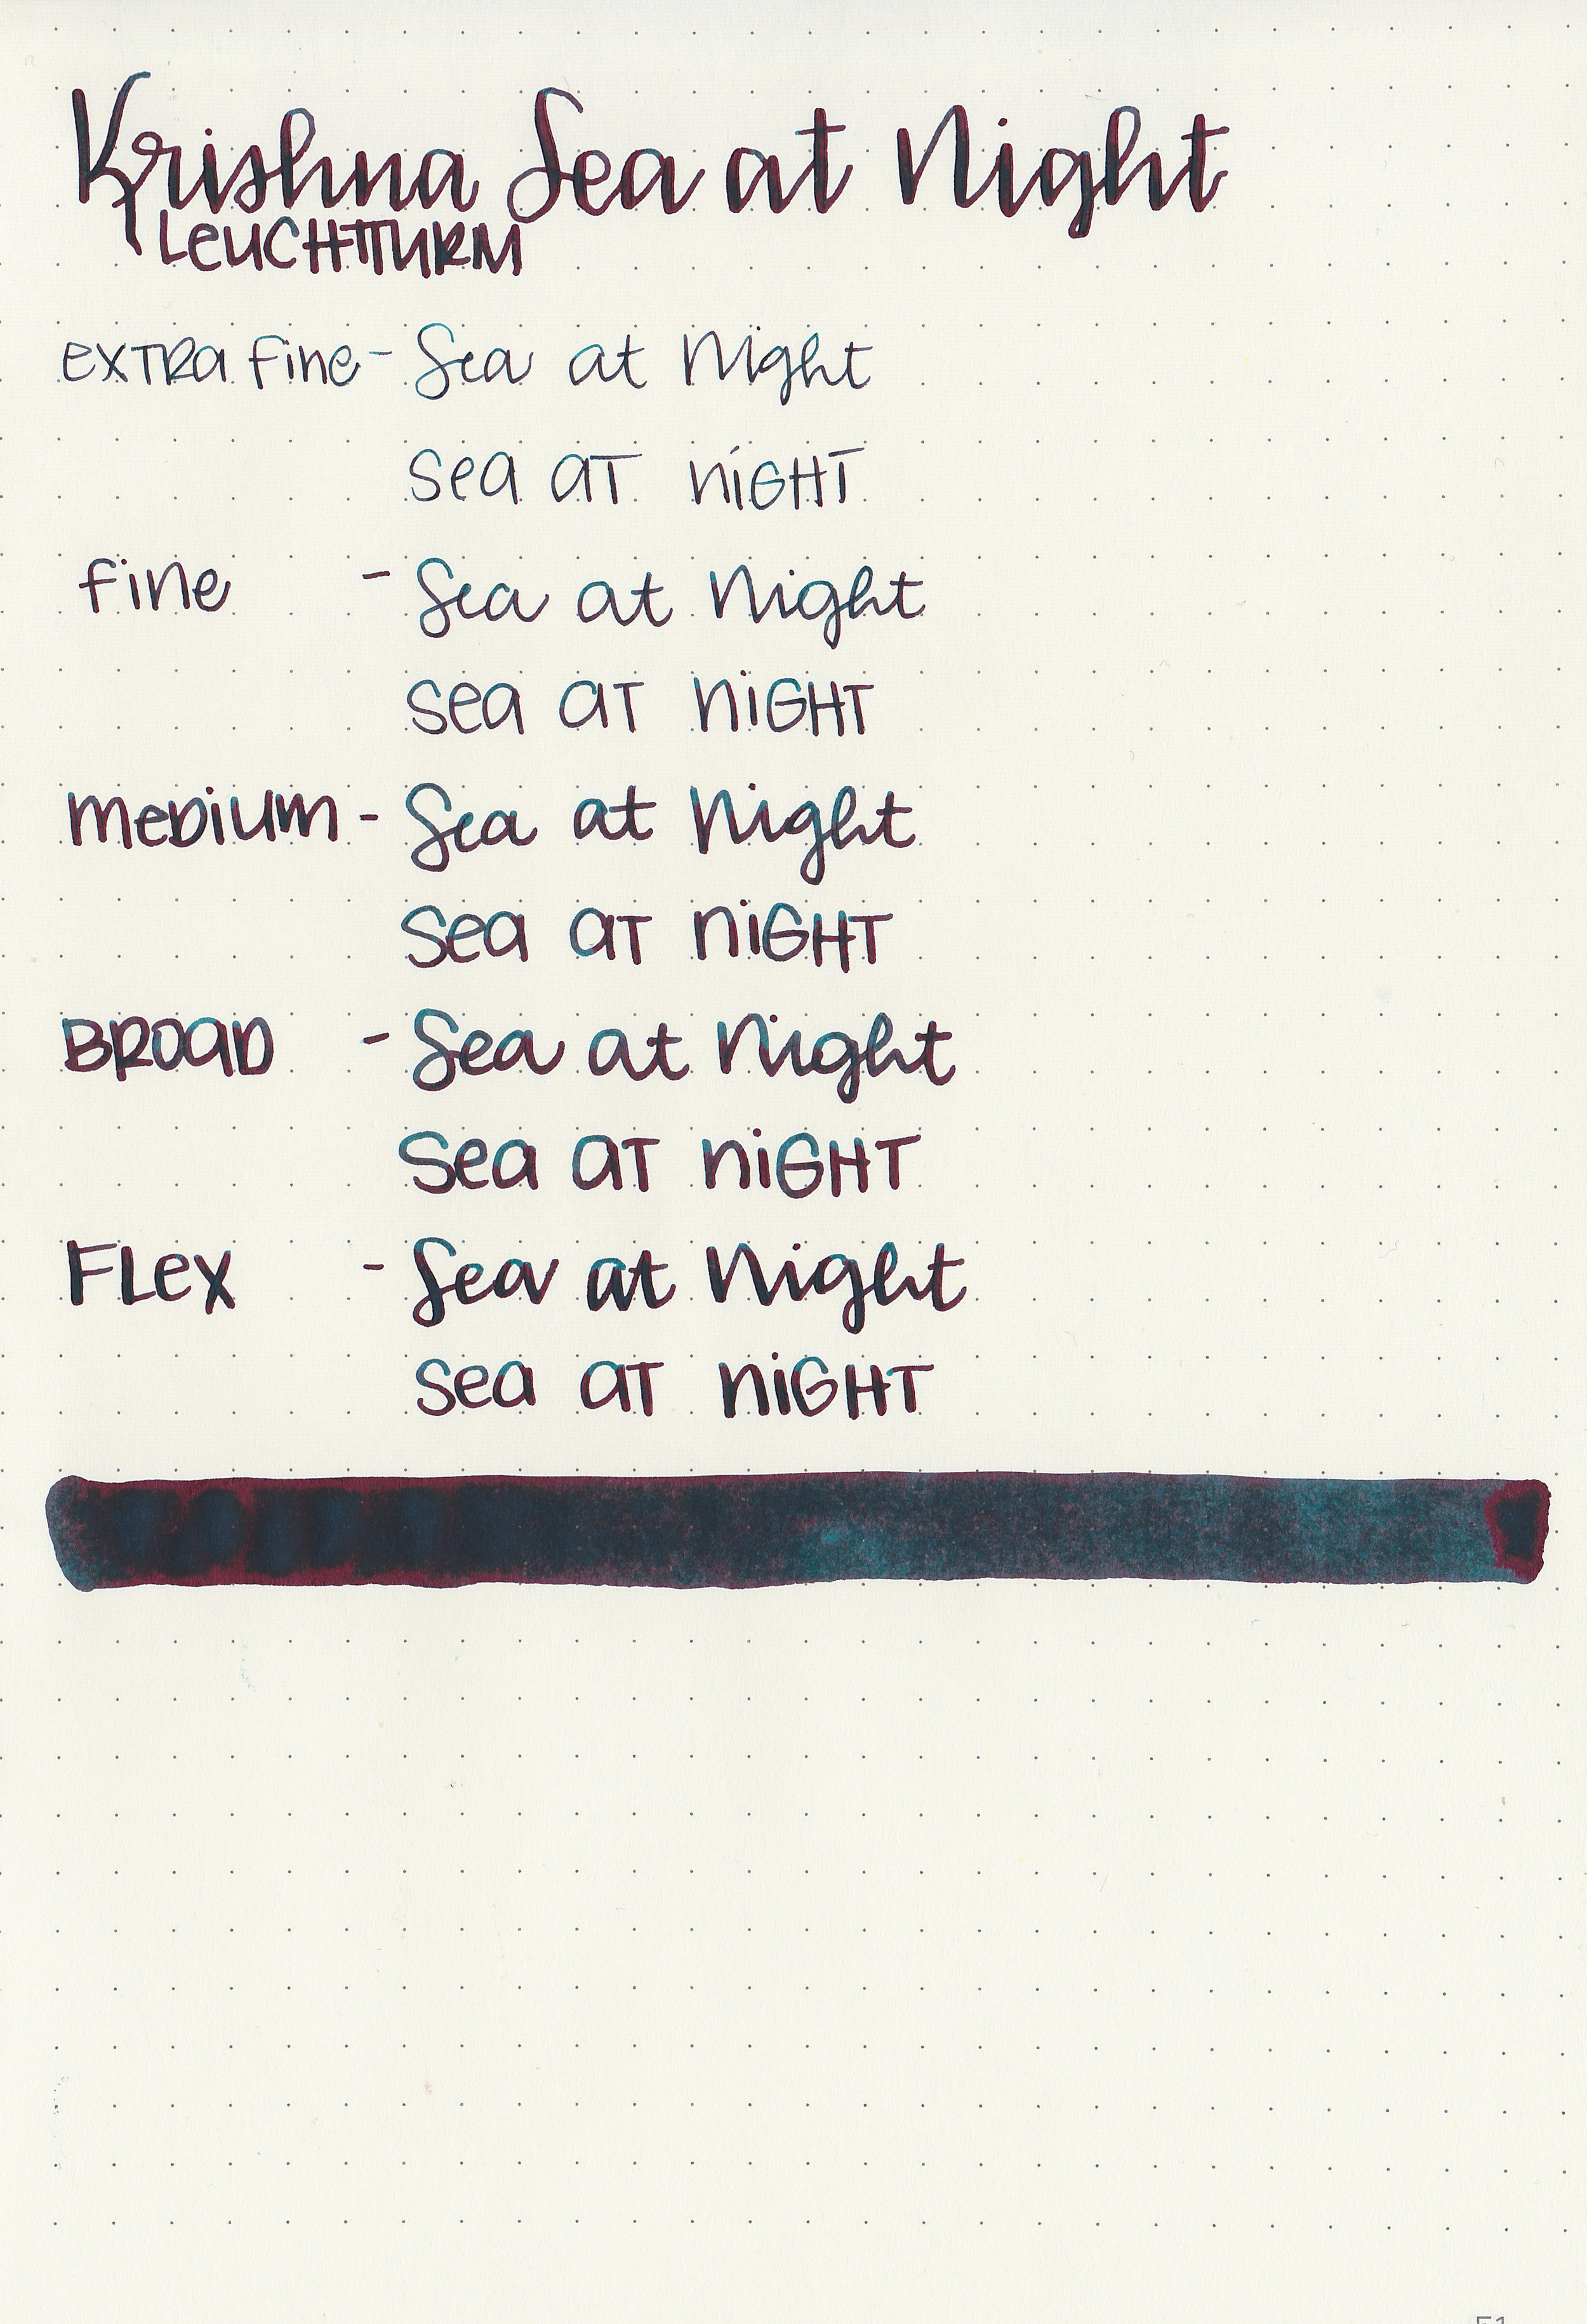 Krishna Sea at Night
LEUCHTTURM
extra fine - Sea at Night
Sea at Night
fine - Sea at Night
Sea at Night
medium - Sea at Night
Sea at Night
Broad - Sea at Night
Sea at Night
Flex - Sea at Night
Sea at Night